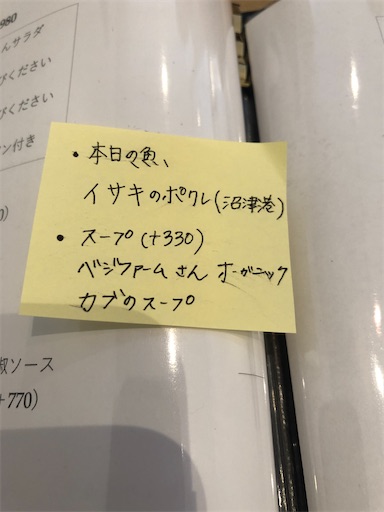 980
んサラダ
ください
びください
ン付き
・本日の魚、
イサキのポワレ(沼津港)
・スープ(+330)
ベジファームさん オーガニック
カブのスープ
椒ソース
+770)